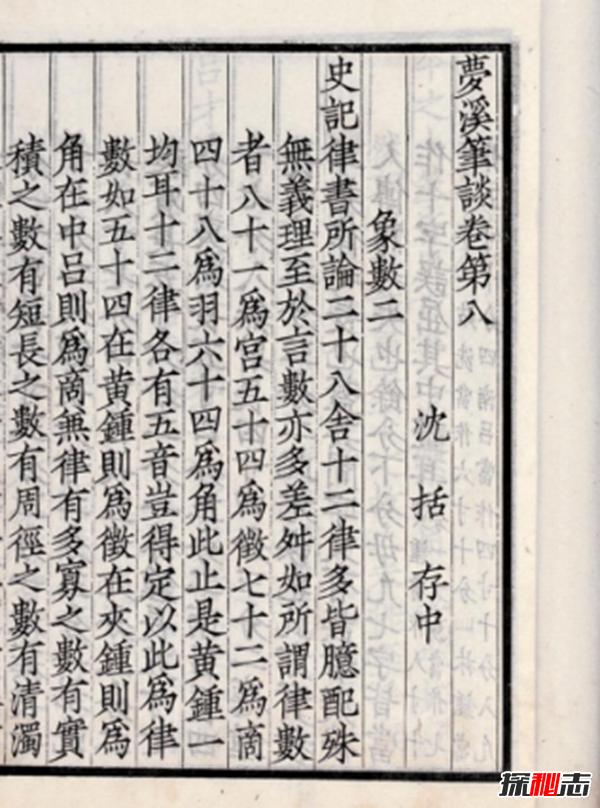 夢溪筆談卷第八
沈括存中
象數二
史記律書所論二十八舍十二律多皆臆配殊
無義理至於言數亦多差舛如所謂律數
者八十一爲宫五十四爲徵七十二爲商
四十八爲羽六十四爲角此止是黄鍾一
均耳十二律各有五音豈得定以此爲律
數如五十四在黄鍾則爲徵在夾鍾則爲
角在中吕則爲商兼律有多寡之數有實
積之數有短長之數有周徑之數有清濁
探秘志